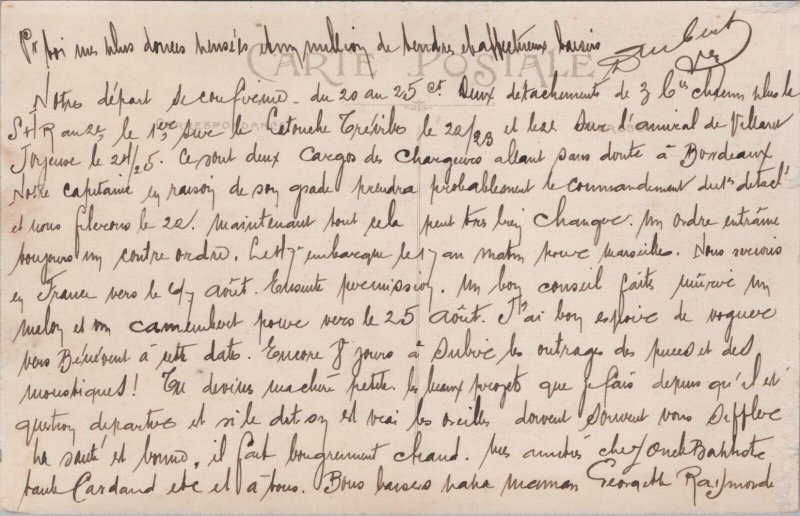 Pr toi mes plus douces pensées et un million de tendres et affectueux baisers
CARTE POSTALE
CORRESPONDANCE
Notre départ se confirme. du 20 au 25 ct. Deux détachements de 3 Cies chacun plus le
le 1er sur le Latouche Tréville le 22/23 et le 2e sur l'amiral de Villaret
Joyeuse le 24/25. Ce sont deux cargos des Chargeurs allant sans doute à Bordeaux
Notre capitaine en raison de son grade prendra probablement le commandement du 1er détacht
et nous filerons le 22. maintenant tout cela peut très bien changer. Un ordre entraine
toujours un contre ordre. Le 17e embarque le 17 au matin pour marseille. Nous serions
en France vers le 7 août. Ensuite permission. Un bon conseil faits mûrir un
melon et un camembert pour vers le 25 août. J'ai bon espoir de voguer
vers Bénévent à cette date. Encore 8 jours à subir les outrages des puces et des
moustiques! Tu devines ma chère petite les beaux projets que je fais depuis qu'il est
question départ et si le dit on est vrai les oreilles doivent souvent vous siffler
La santé est bonne, il fait bougrement chaud. Mes amitiés chez Oncle Baptiste
tante et à tous. Bons baisers papa maman Georgette Raymonde